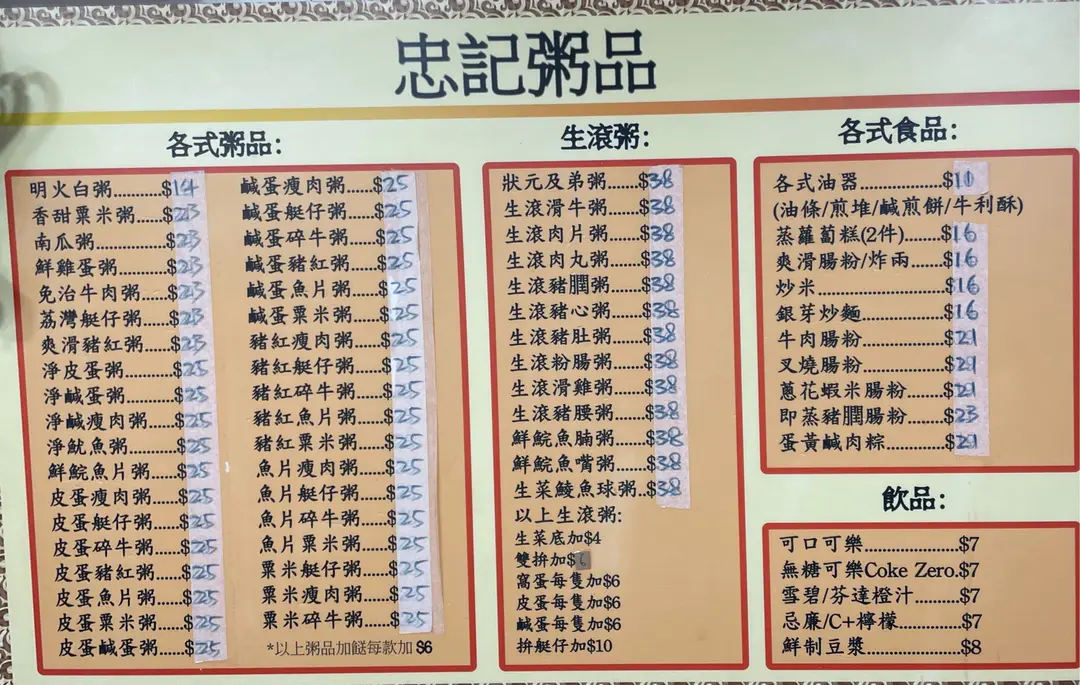 忠記粥品
各式粥品:
明火白粥..........$14
香甜粟米粥......$23
南瓜粥..............$23
鮮雞蛋粥..........$23
免治牛肉粥......$23
荔灣艇仔粥......$23
爽滑豬紅粥......$23
淨皮蛋粥..........$25
淨鹹蛋粥..........$25
淨鹹瘦肉粥......$25
淨魷魚粥..........$25
鮮鯇魚片粥......$25
皮蛋瘦肉粥......$25
皮蛋艇仔粥......$25
皮蛋碎牛粥......$25
皮蛋豬紅粥......$25
皮蛋魚片粥......$25
皮蛋粟米粥......$25
皮蛋鹹蛋粥......$25
鹹蛋瘦肉粥......$25
鹹蛋艇仔粥......$25
鹹蛋碎牛粥......$25
鹹蛋豬紅粥......$25
鹹蛋魚片粥......$25
鹹蛋粟米粥......$25
豬紅瘦肉粥......$25
豬紅艇仔粥......$25
豬紅碎牛粥......$25
豬紅魚片粥......$25
豬紅粟米粥......$25
魚片瘦肉粥......$25
魚片艇仔粥......$25
魚片碎牛粥......$25
魚片粟米粥......$25
粟米艇仔粥......$25
粟米瘦肉粥......$25
粟米碎牛粥......$25
*以上粥品加餸每款加 $6
生滾粥:
狀元及弟粥......$38
生滾滑牛粥......$38
生滾肉片粥......$38
生滾肉丸粥......$38
生滾豬膶粥......$38
生滾豬心粥......$38
生滾豬肚粥......$38
生滾粉腸粥......$38
生滾滑雞粥......$38
生滾豬腰粥......$38
鮮鯇魚腩粥......$38
鮮鯇魚嘴粥......$38
生菜鯪魚球粥..$38
以上生滾粥:
生菜底加$4
雙拚加$
窩蛋每隻加$6
皮蛋每隻加$6
鹹蛋每隻加$6
拚艇仔加$10
各式食品:
各式油器................$11
(油條/煎堆/鹹煎餅/牛利酥)
蒸蘿蔔糕(2件).......$16
爽滑腸粉/炸兩.......$16
炒米........................$16
銀芽炒麵................$16
牛肉腸粉................$21
叉燒腸粉................$21
蔥花蝦米腸粉.......$21
即蒸豬膶腸粉.......$23
蛋黃鹹肉粽............$21
飲品:
可口可樂.......................$7
無糖可樂Coke Zero.$7
雪碧/芬達橙汁...........$7
忌廉/C+檸檬...............$7
鮮制豆漿.......................$8